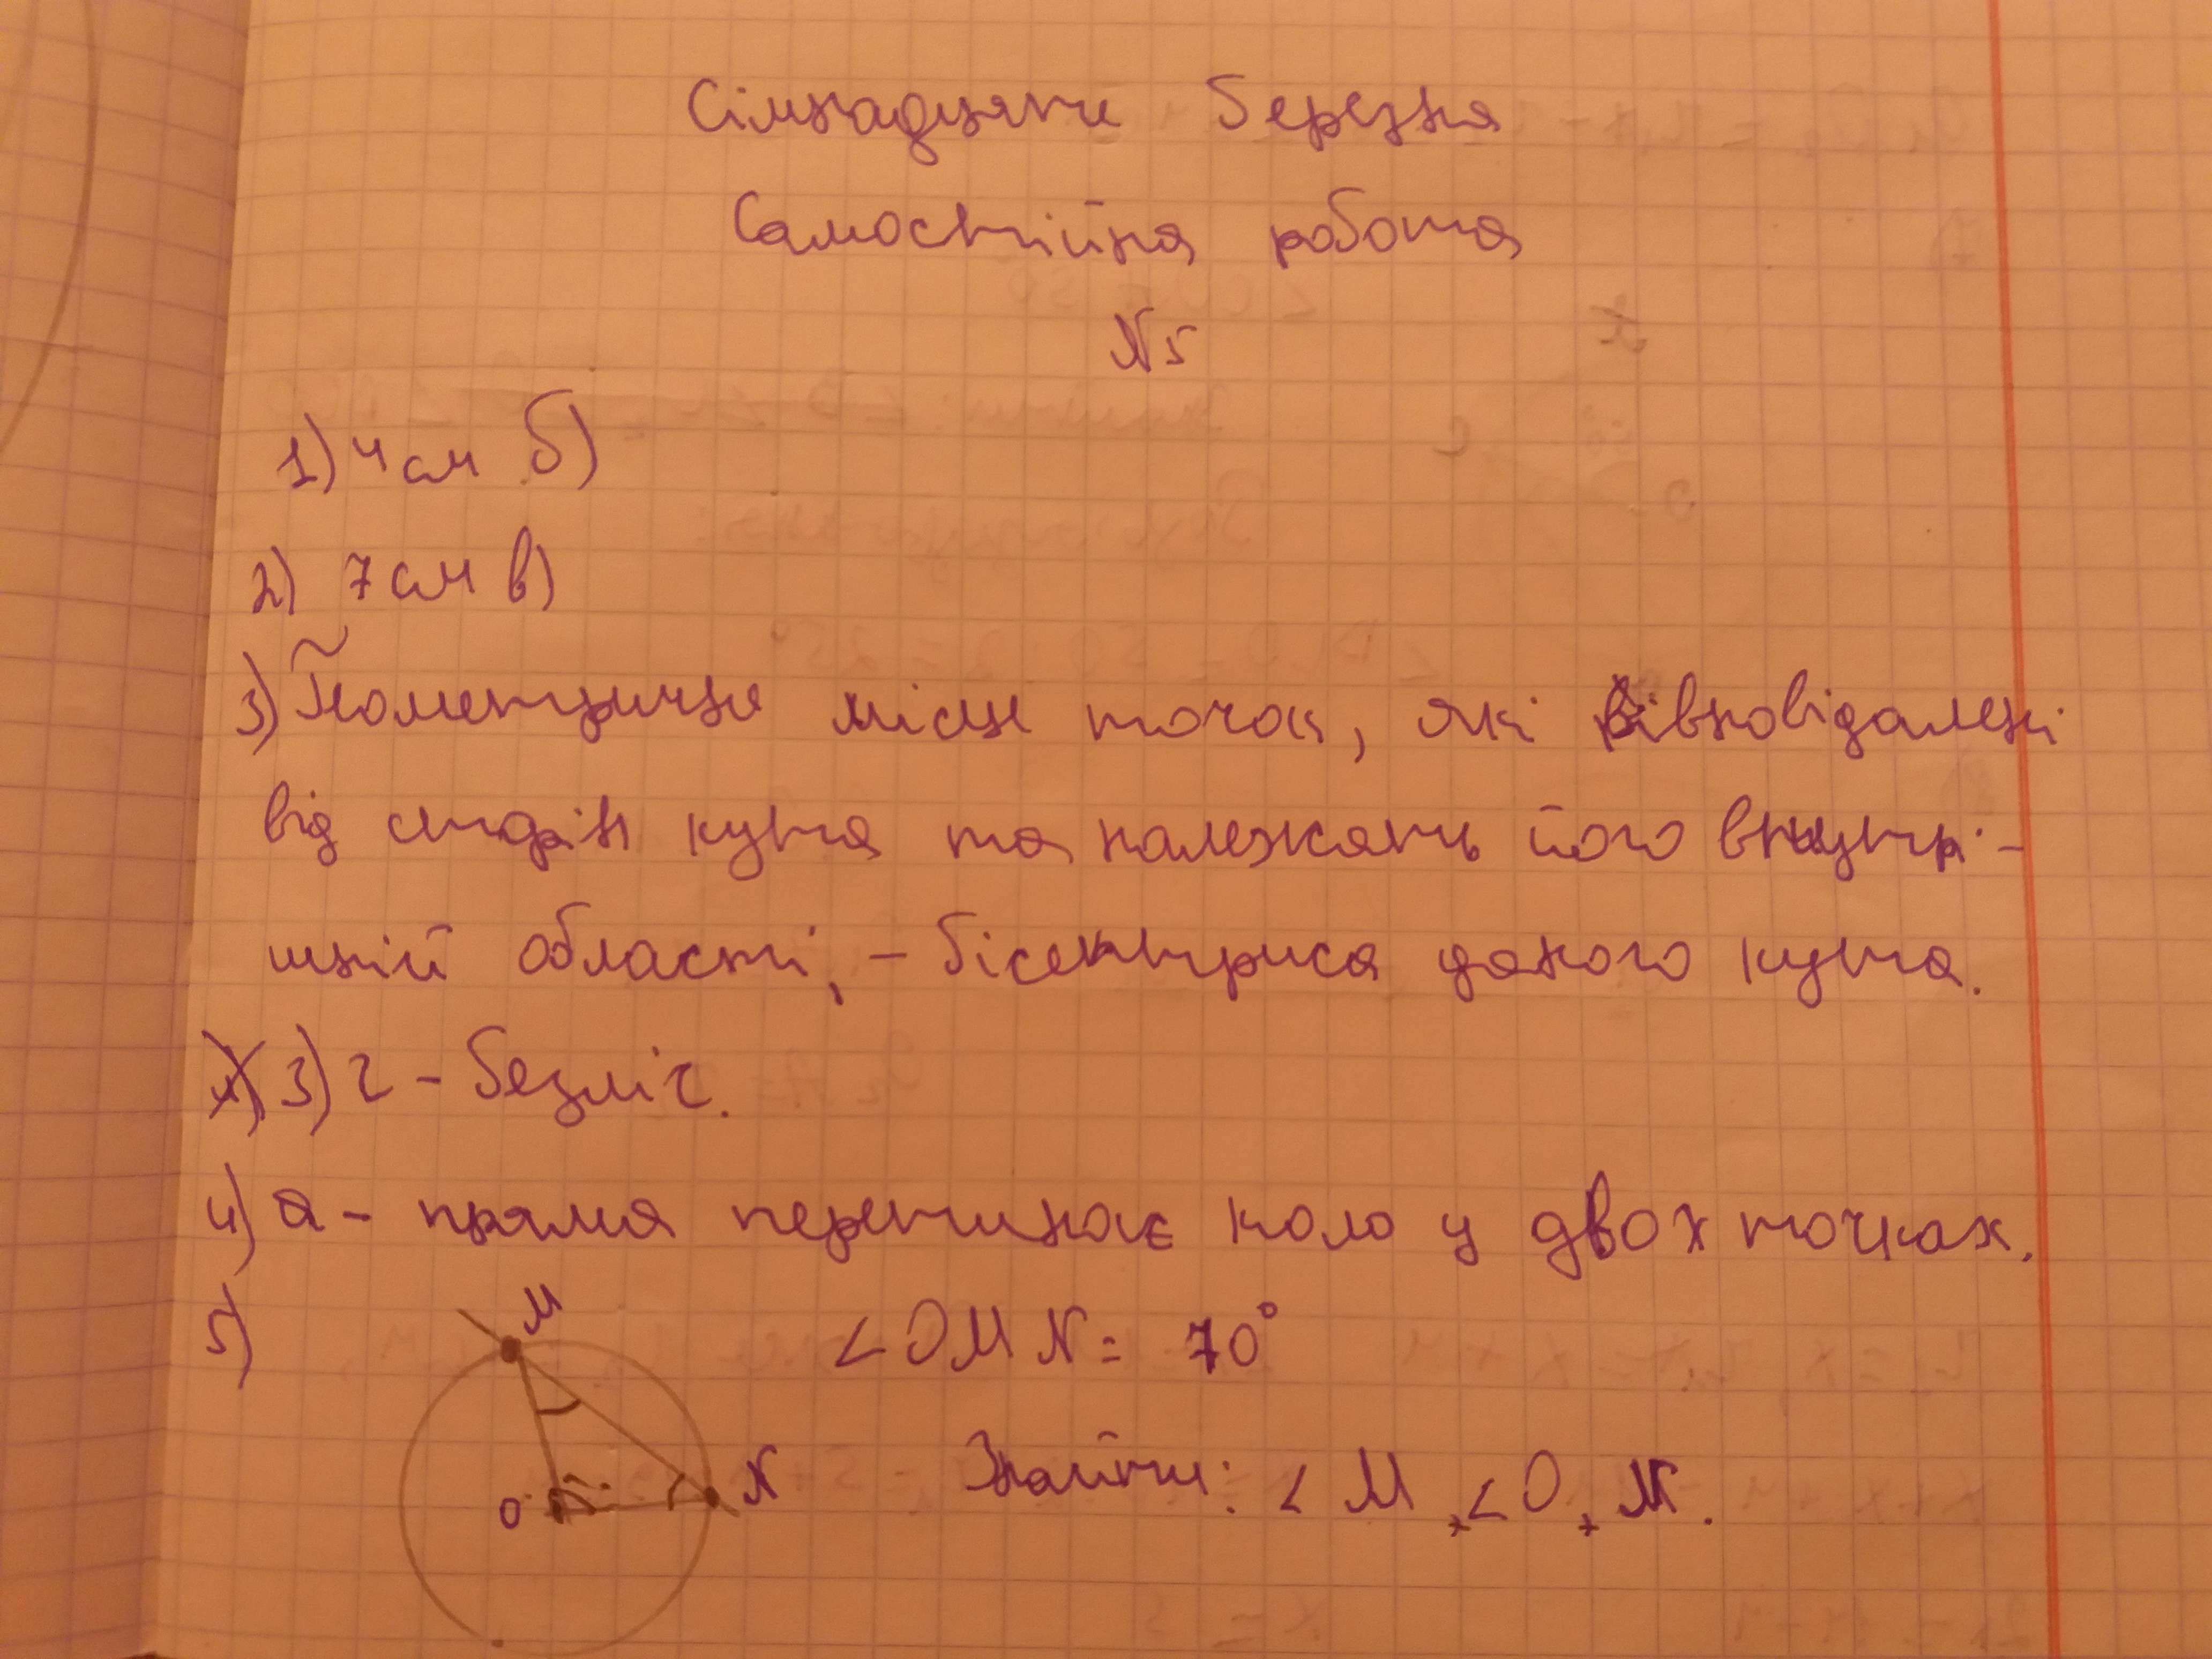 Сімнадцяте березня
Самостійна робота
№5
1) 4 см б)
2) 7 см в)
3) Геометричне місце точок, які рівновіддалені
від сторін кута та належать його внутрі-
шній області, - бісектриса даного кута.
3) г - безліч.
4) а - пряма перетинає коло у двох точках.
5)
M
<OMN = 70°
O
N
Знайти: <M, <O, N.